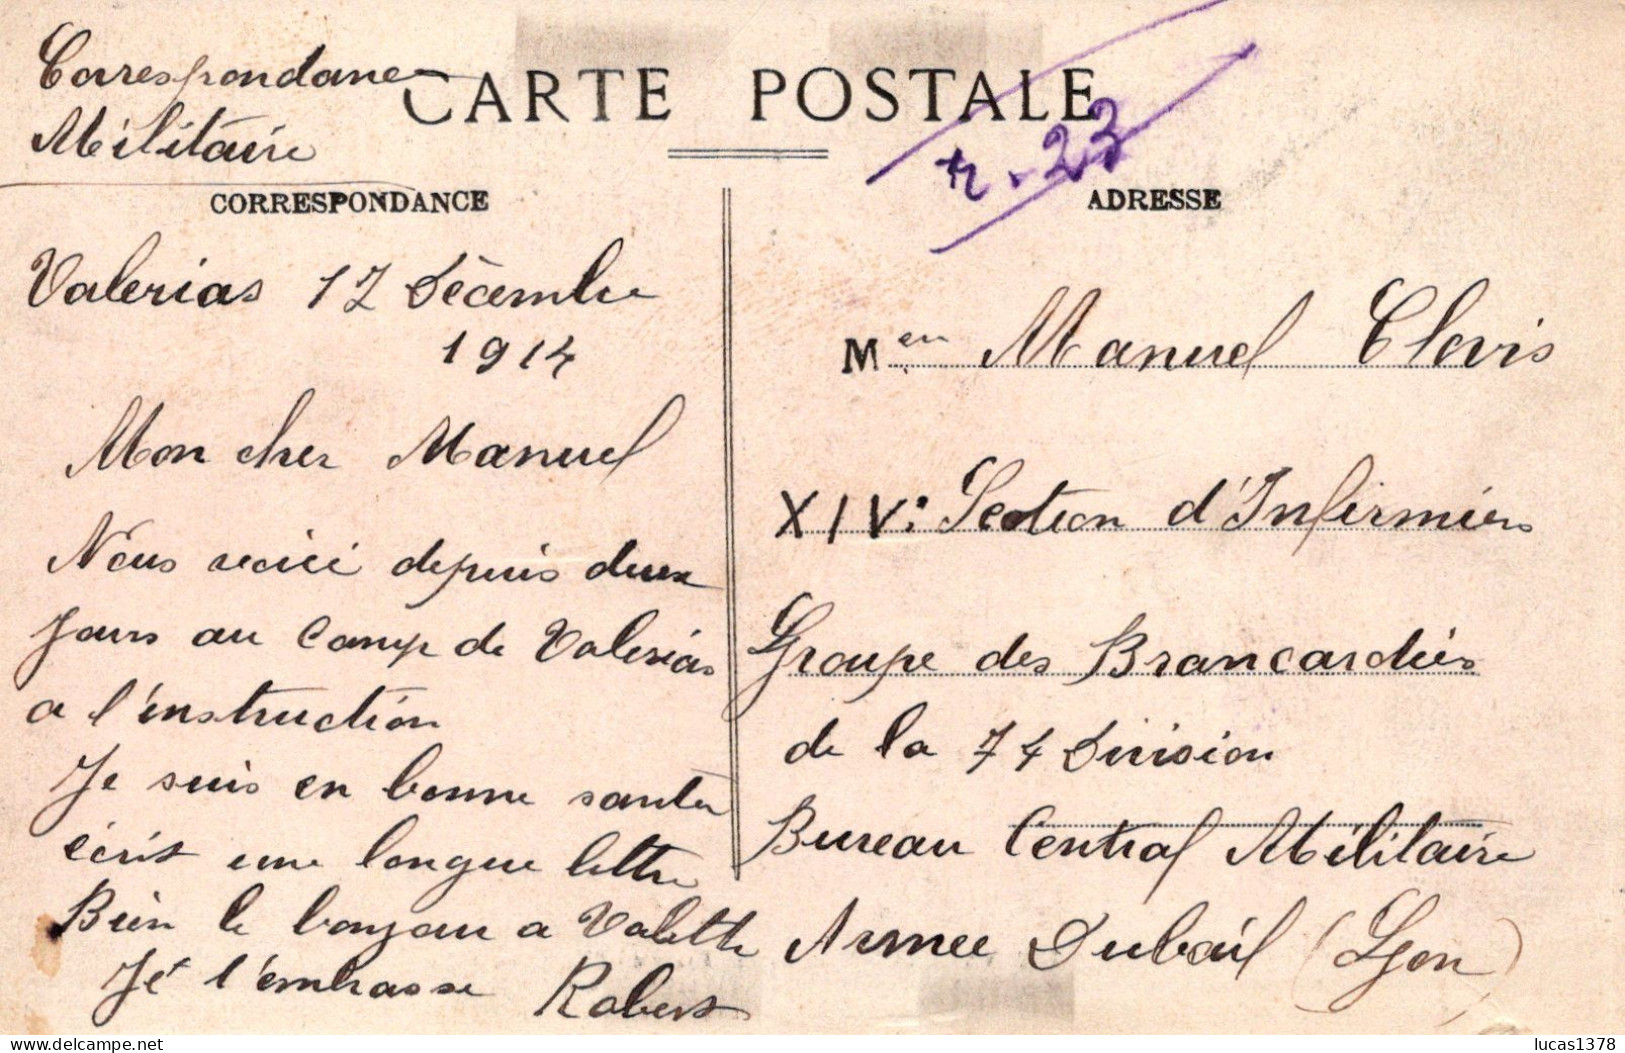 Correspondance
Militaire
CARTE POSTALE
r. 23
CORRESPONDANCE
ADRESSE
Valerias 17 Décembre
1914
Mon cher Manuel
Nous voici depuis deux
jours au Camp de Valerias
a l'instruction
Je suis en bonne santée
écris une longue lettre
Bien le bonjour a Valette
Je t'embrasse Robert
Mr Manuel Clovis
XIVe Section d'Infirmiers
Groupe des Brancardiers
de la 74 Division
Bureau Central Militaire
Armee Dubail (Lyon)
delcampe.net
lucas1378